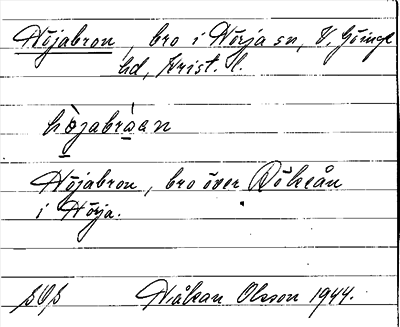 Nöjabron, bro i Nörja sn, V. Göinge
hd, Krist. l.
höjabråan
Nöjabron, bro över Rökeån
i Nörja.
Håkan Olsson 1944.